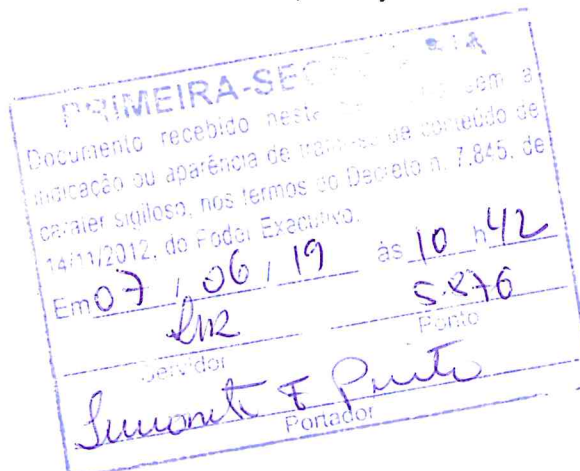 PRIMEIRA-SECRETARIA
Documento recebido nesta sem a
indicação ou aparência de tratar-se de conteúdo de
caráter sigiloso, nos termos do Decreto n. 7.845, de
14/11/2012, do Poder Executivo.
Em 07 / 06 / 19 às 10 h 42
5.876
Servidor Ponto
Portador